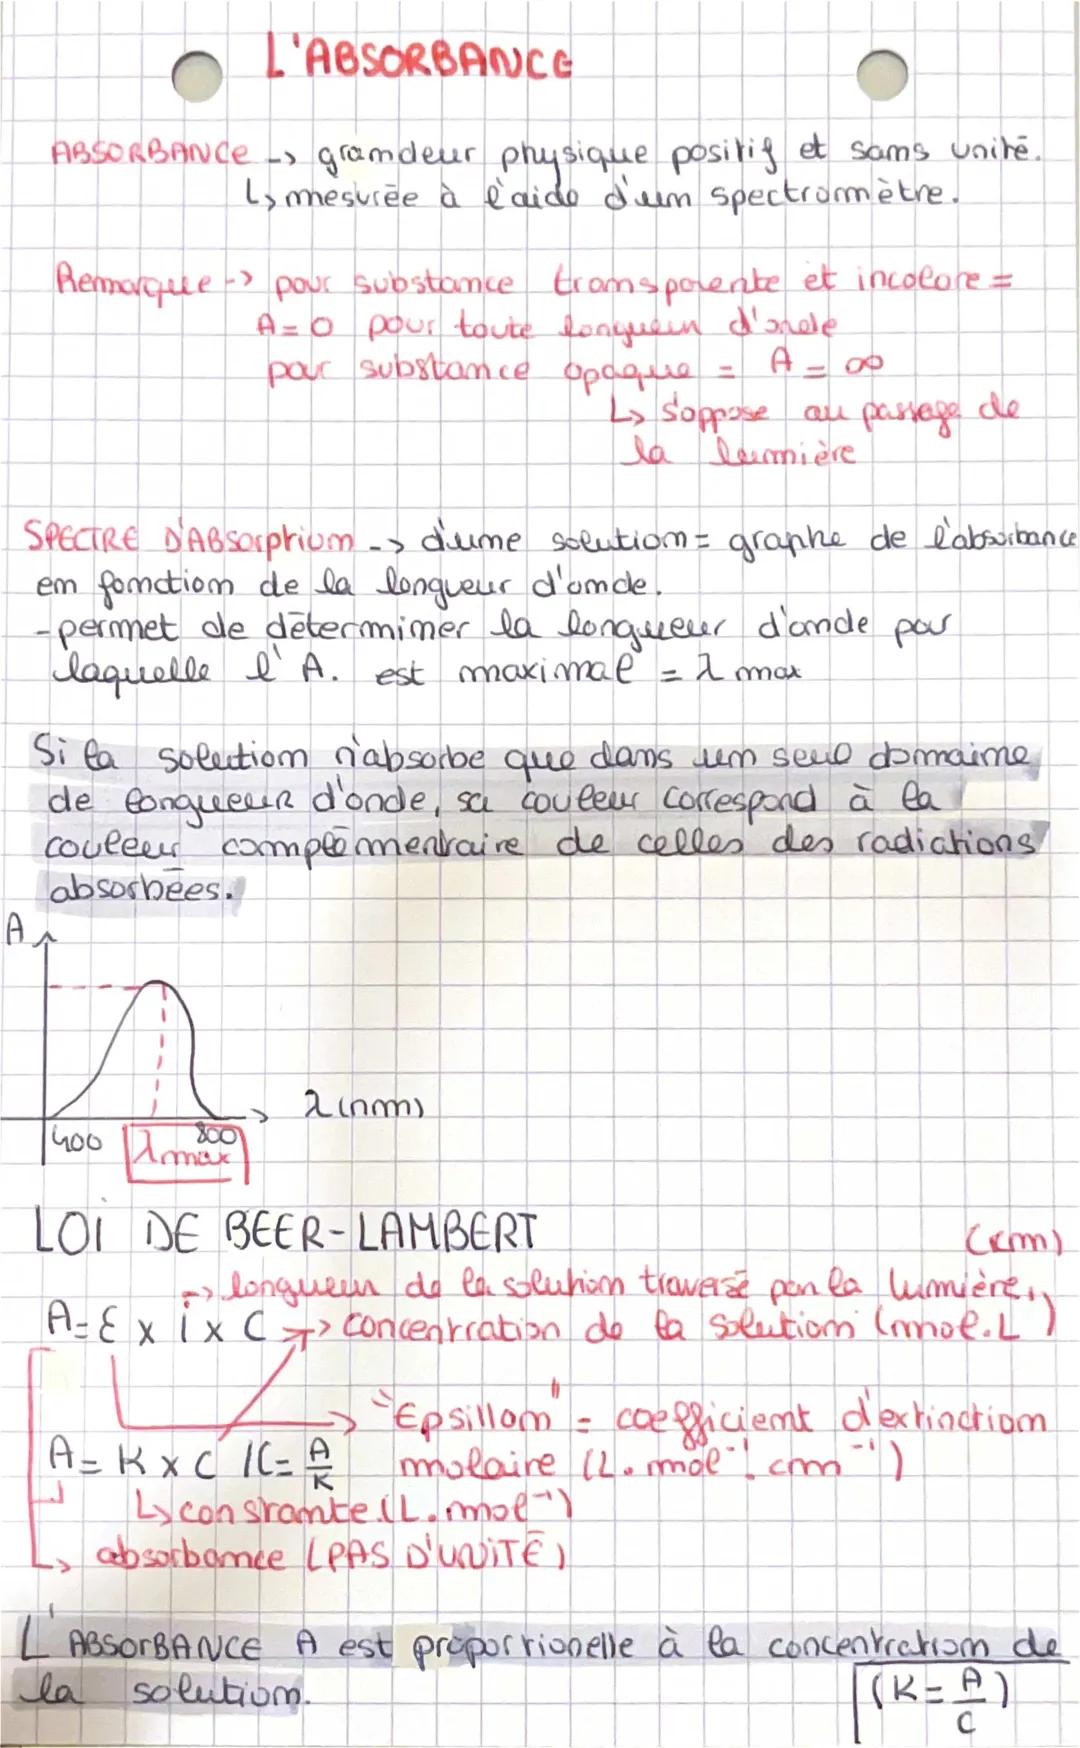 L'ABSORBANCE
ABSORBANCE -> grandeur physique positif et sans unité.
↳ mesurée à l'aide d'un spectromètre.
Remarque -> pour substance transparente et incolore =
A = 0 pour toute longueur d'onde
pour substance opaque = A = ∞
↳ s'oppose au passage de
la lumière
SPECTRE D'ABSorption -> d'une solution = graphe de l'absorbance
en fonction de la longueur d'onde.
- permet de déterminer la longueur d'onde par
laquelle l'A. est maximal = λ max
Si la solution n'absorbe que dans un seul domaine
de longueur d'onde, sa couleur correspond à la
couleur complémentaire de celles des radiations
absorbées.
A
λ (nm)
400 λmax 800
LOI DE BEER-LAMBERT
(cm)
-> longueur de la solution traversé par la lumière
A = ε x i x C -> concentration de la solution (mol.L⁻¹)
"Epsillon" = coefficient d'extinction
A = K x C / C = A/K molaire (L.mol⁻¹.cm⁻¹)
↳ constante (L.mol⁻¹)
↳ absorbance (PAS D'UNITÉ)
L'ABSORBANCE A est proportionelle à la concentration de
la solution. (K = A/C)